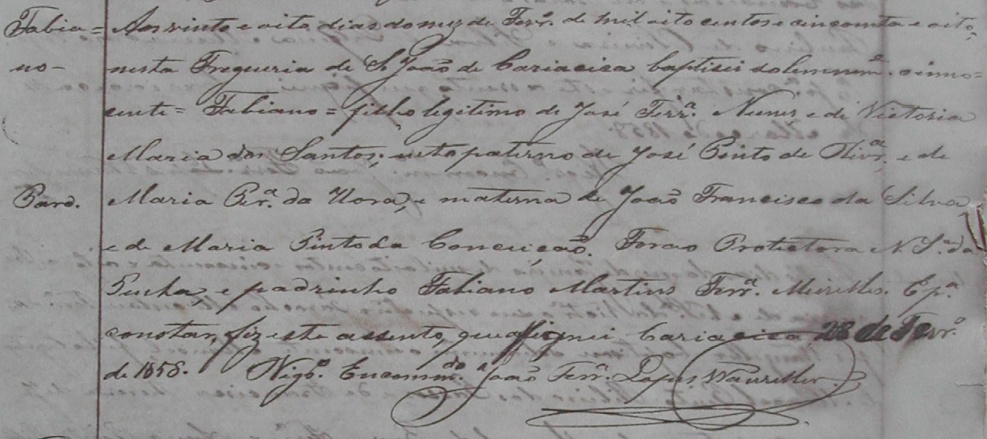 Fabia= Aos vinte e oito dias do mez de Ferº. de mil oito centos e cincoenta e oito,
no- nesta Freguezia de S. João de Cariacica baptisei solemnem.e o inno-
cente= Fabiano= filho legitimo de José Ferrª. Nunes e de Victoria
Maria dos Santos; neto paterno de José Pinto de Olivrª. e de
Pard. Maria Perª. da Hora, e materna de João Francisco da Silva
e de Maria Pinto da Conceição. Forão Protectora N. Sª. da
Penha, e padrinho Fabiano Martins Ferrª. Meirelles. E pª.
constar, fiz este assento, que assignei. Cariacica 28 de Ferº.
de 1858. Vigº. Encommdº. João Ferrª. Lopes